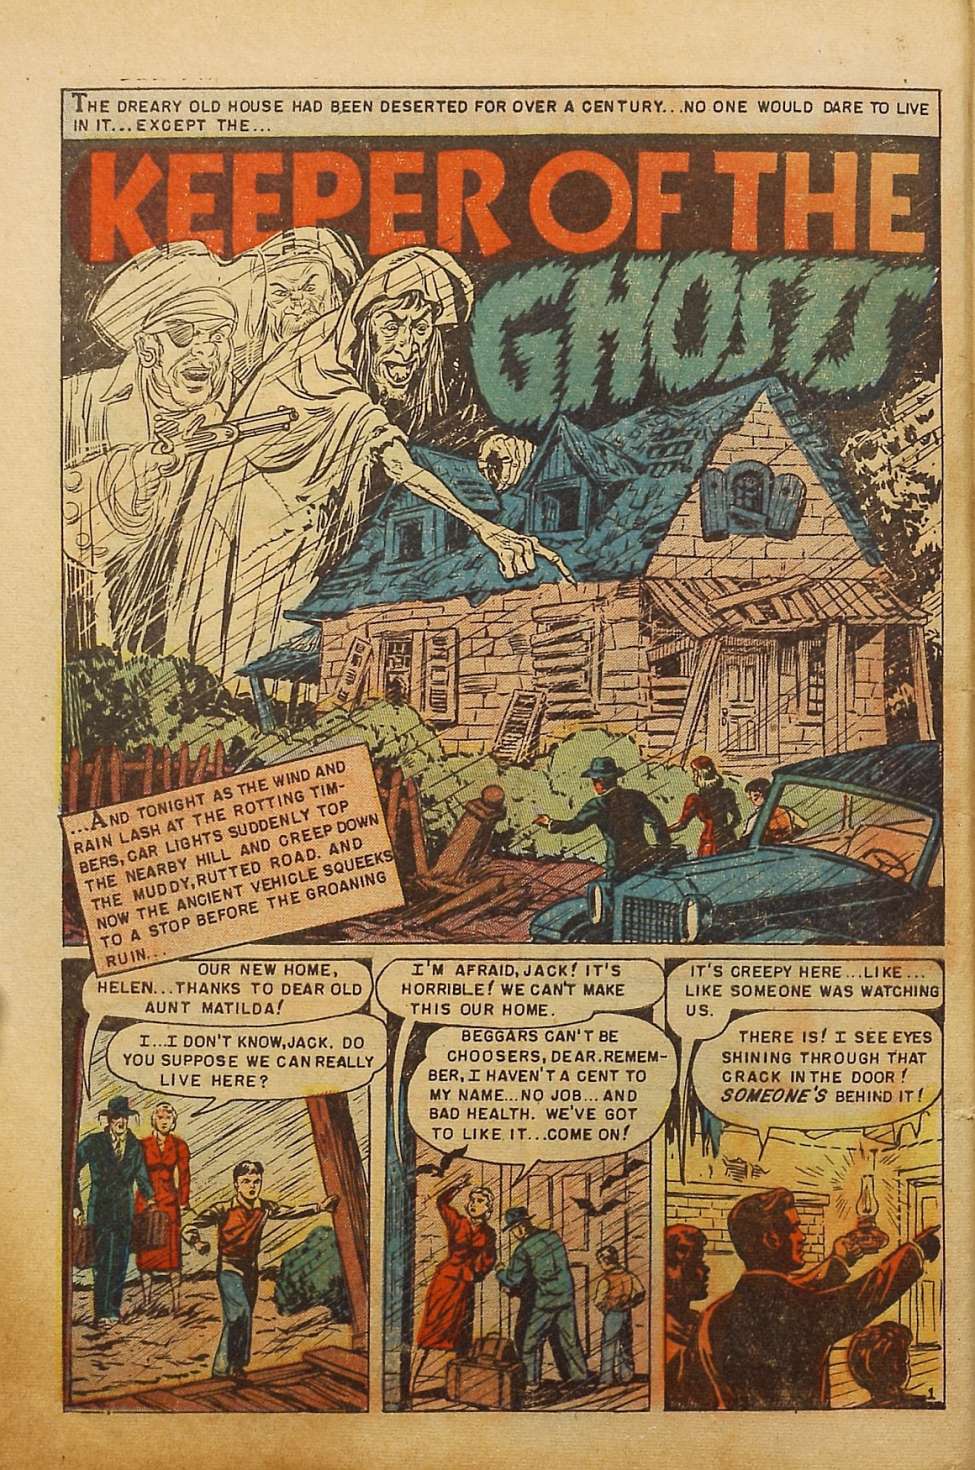 THE DREARY OLD HOUSE HAD BEEN DESERTED FOR OVER A CENTURY...NO ONE WOULD DARE TO LIVE
IN IT...EXCEPT THE...
KEEPER OF THE
GHOSTS
...AND TONIGHT AS THE WIND AND
RAIN LASH AT THE ROTTING TIM-
BERS, CAR LIGHTS SUDDENLY TOP
THE NEARBY HILL AND CREEP DOWN
THE MUDDY, RUTTED ROAD. AND
NOW THE ANCIENT VEHICLE SQUEEKS
TO A STOP BEFORE THE GROANING
RUIN...
OUR NEW HOME,
HELEN...THANKS TO DEAR OLD
AUNT MATILDA!
I...I DON'T KNOW, JACK. DO
YOU SUPPOSE WE CAN REALLY
LIVE HERE?
I'M AFRAID, JACK! IT'S
HORRIBLE! WE CAN'T MAKE
THIS OUR HOME.
BEGGARS CAN'T BE
CHOOSERS, DEAR. REMEM-
BER, I HAVEN'T A CENT TO
MY NAME...NO JOB...AND
BAD HEALTH. WE'VE GOT
TO LIKE IT...COME ON!
IT'S CREEPY HERE...LIKE...
LIKE SOMEONE WAS WATCHING
US.
THERE IS! I SEE EYES
SHINING THROUGH THAT
CRACK IN THE DOOR!
SOMEONE'S BEHIND IT!
1